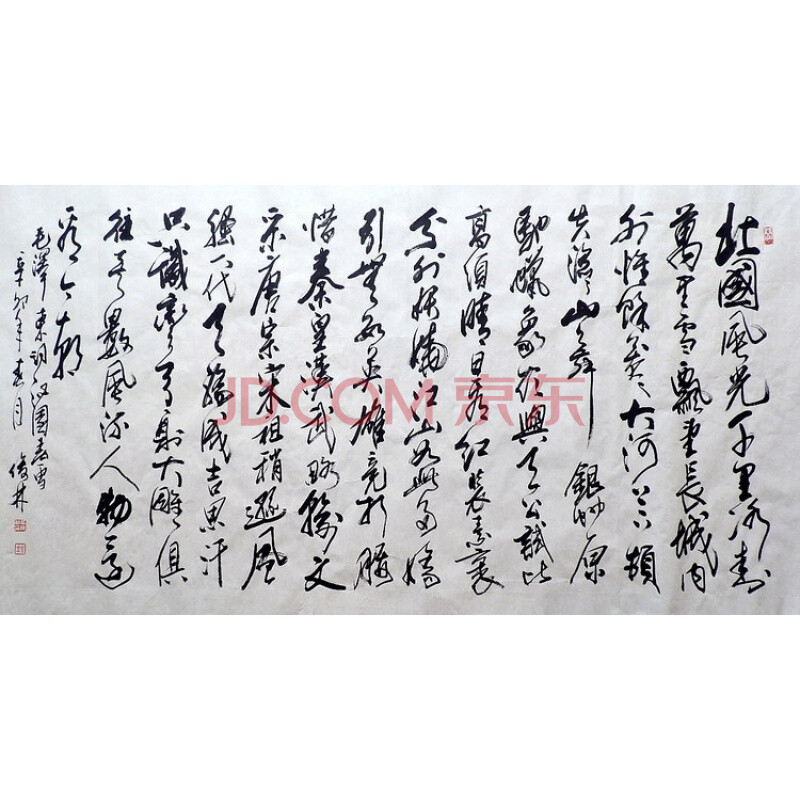 北國風光千里冰封
萬里雪飄望長城內
外惟餘莽々大河上下頓
失滔々山舞銀蛇原
馳蠟象欲與天公試比
高須晴日看紅裝素裹
分外妖嬈江山如此多嬌
引無數英雄競折腰
惜秦皇漢武略輸文
采唐宗宋祖稍遜風
騷一代天驕成吉思汗
只識彎弓射大雕俱
往矣數風流人物還
看今朝
毛澤東詞沁園春雪
辛卯年春月
JD.COM 京东